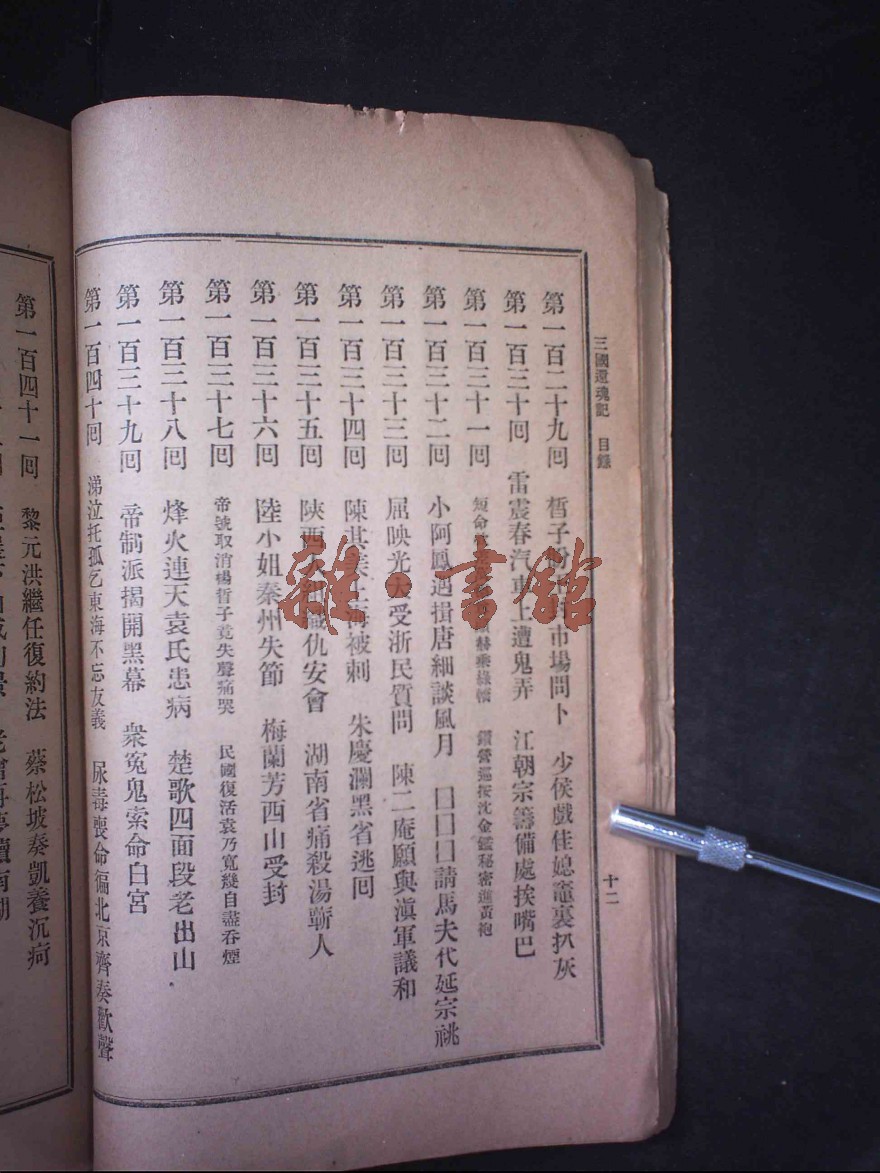 三國還魂記　目錄
十二
第一百二十九回　晳子　市場問卜　少侯戲佳媳竈裏扒灰
第一百三十回　雷震春汽車上遭鬼弄　江朝宗籌備處挨嘴巴
第一百三十一回　短命　沈金鑑秘密進黃袍
第一百三十二回　小阿鳳遇揖唐細談風月　口口口請馬夫代延宗祧
第一百三十三回　屈映光大受浙民質問　陳二庵願與滇軍議和
第一百三十四回　陳其美上海被刺　朱慶瀾黑省逃回
第一百三十五回　陝西　仇安會　湖南省痛殺湯蘄人
第一百三十六回　陸小姐秦州失節　梅蘭芳西山受封
第一百三十七回　帝號取消楊晳子竟失聲痛哭　民國復活袁乃寬幾自盡吞煙
第一百三十八回　烽火連天袁氏患病　楚歌四面段老出山
第一百三十九回　帝制派揭開黑幕　衆冤鬼索命白宮
第一百四十回　涕泣托孤乞東海不忘友義　尿毒喪命徧北京齊奏歡聲
第一百四十一回　黎元洪繼任復約法　蔡松坡奏凱養沉疴
雜·書館